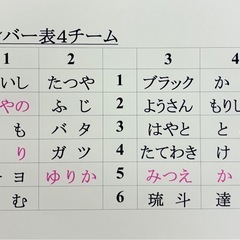 ンバー表4チーム
1 2 3 4
いし たつや 1 ブラック か
やの ふじ 2 ようさん もりし
も バタ 3 はやと と
り ガツ 4 たてわき け
ヨ ゆりか 5 みつえ か
む 6 琉斗 達